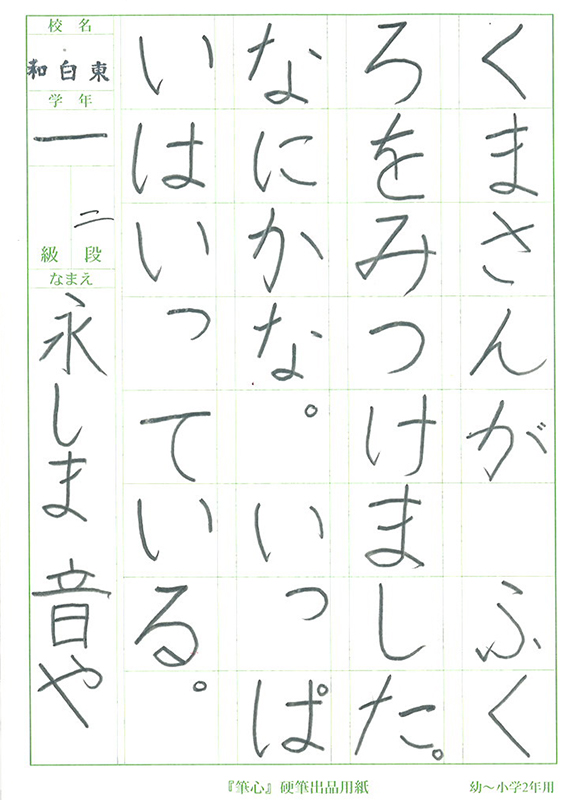 くまさんが　ふく
ろをみつけました。
なにかな。いっぱ
いはいっている。
校名
和白東
学年
一
二
級 段
なまえ
永しま 音や
『筆心』硬筆出品用紙
幼〜小学2年用